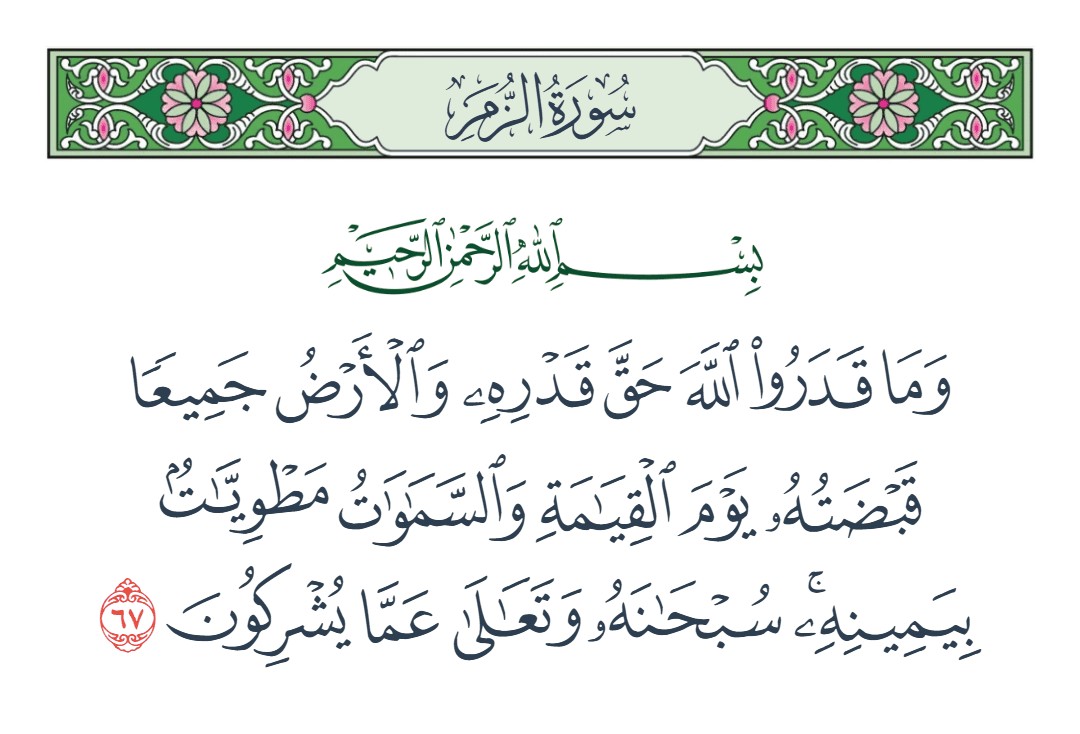 سُورَةُ الزُّمَرِ
بِسْمِ ٱللَّهِ ٱلرَّحْمَٰنِ ٱلرَّحِيمِ
وَمَا قَدَرُوا۟ ٱللَّهَ حَقَّ قَدْرِهِۦ وَٱلْأَرْضُ جَمِيعًا
قَبْضَتُهُۥ يَوْمَ ٱلْقِيَٰمَةِ وَٱلسَّمَٰوَٰتُ مَطْوِيَّٰتٌۢ
بِيَمِينِهِۦۚ سُبْحَٰنَهُۥ وَتَعَٰلَىٰ عَمَّا يُشْرِكُونَ ٦٧